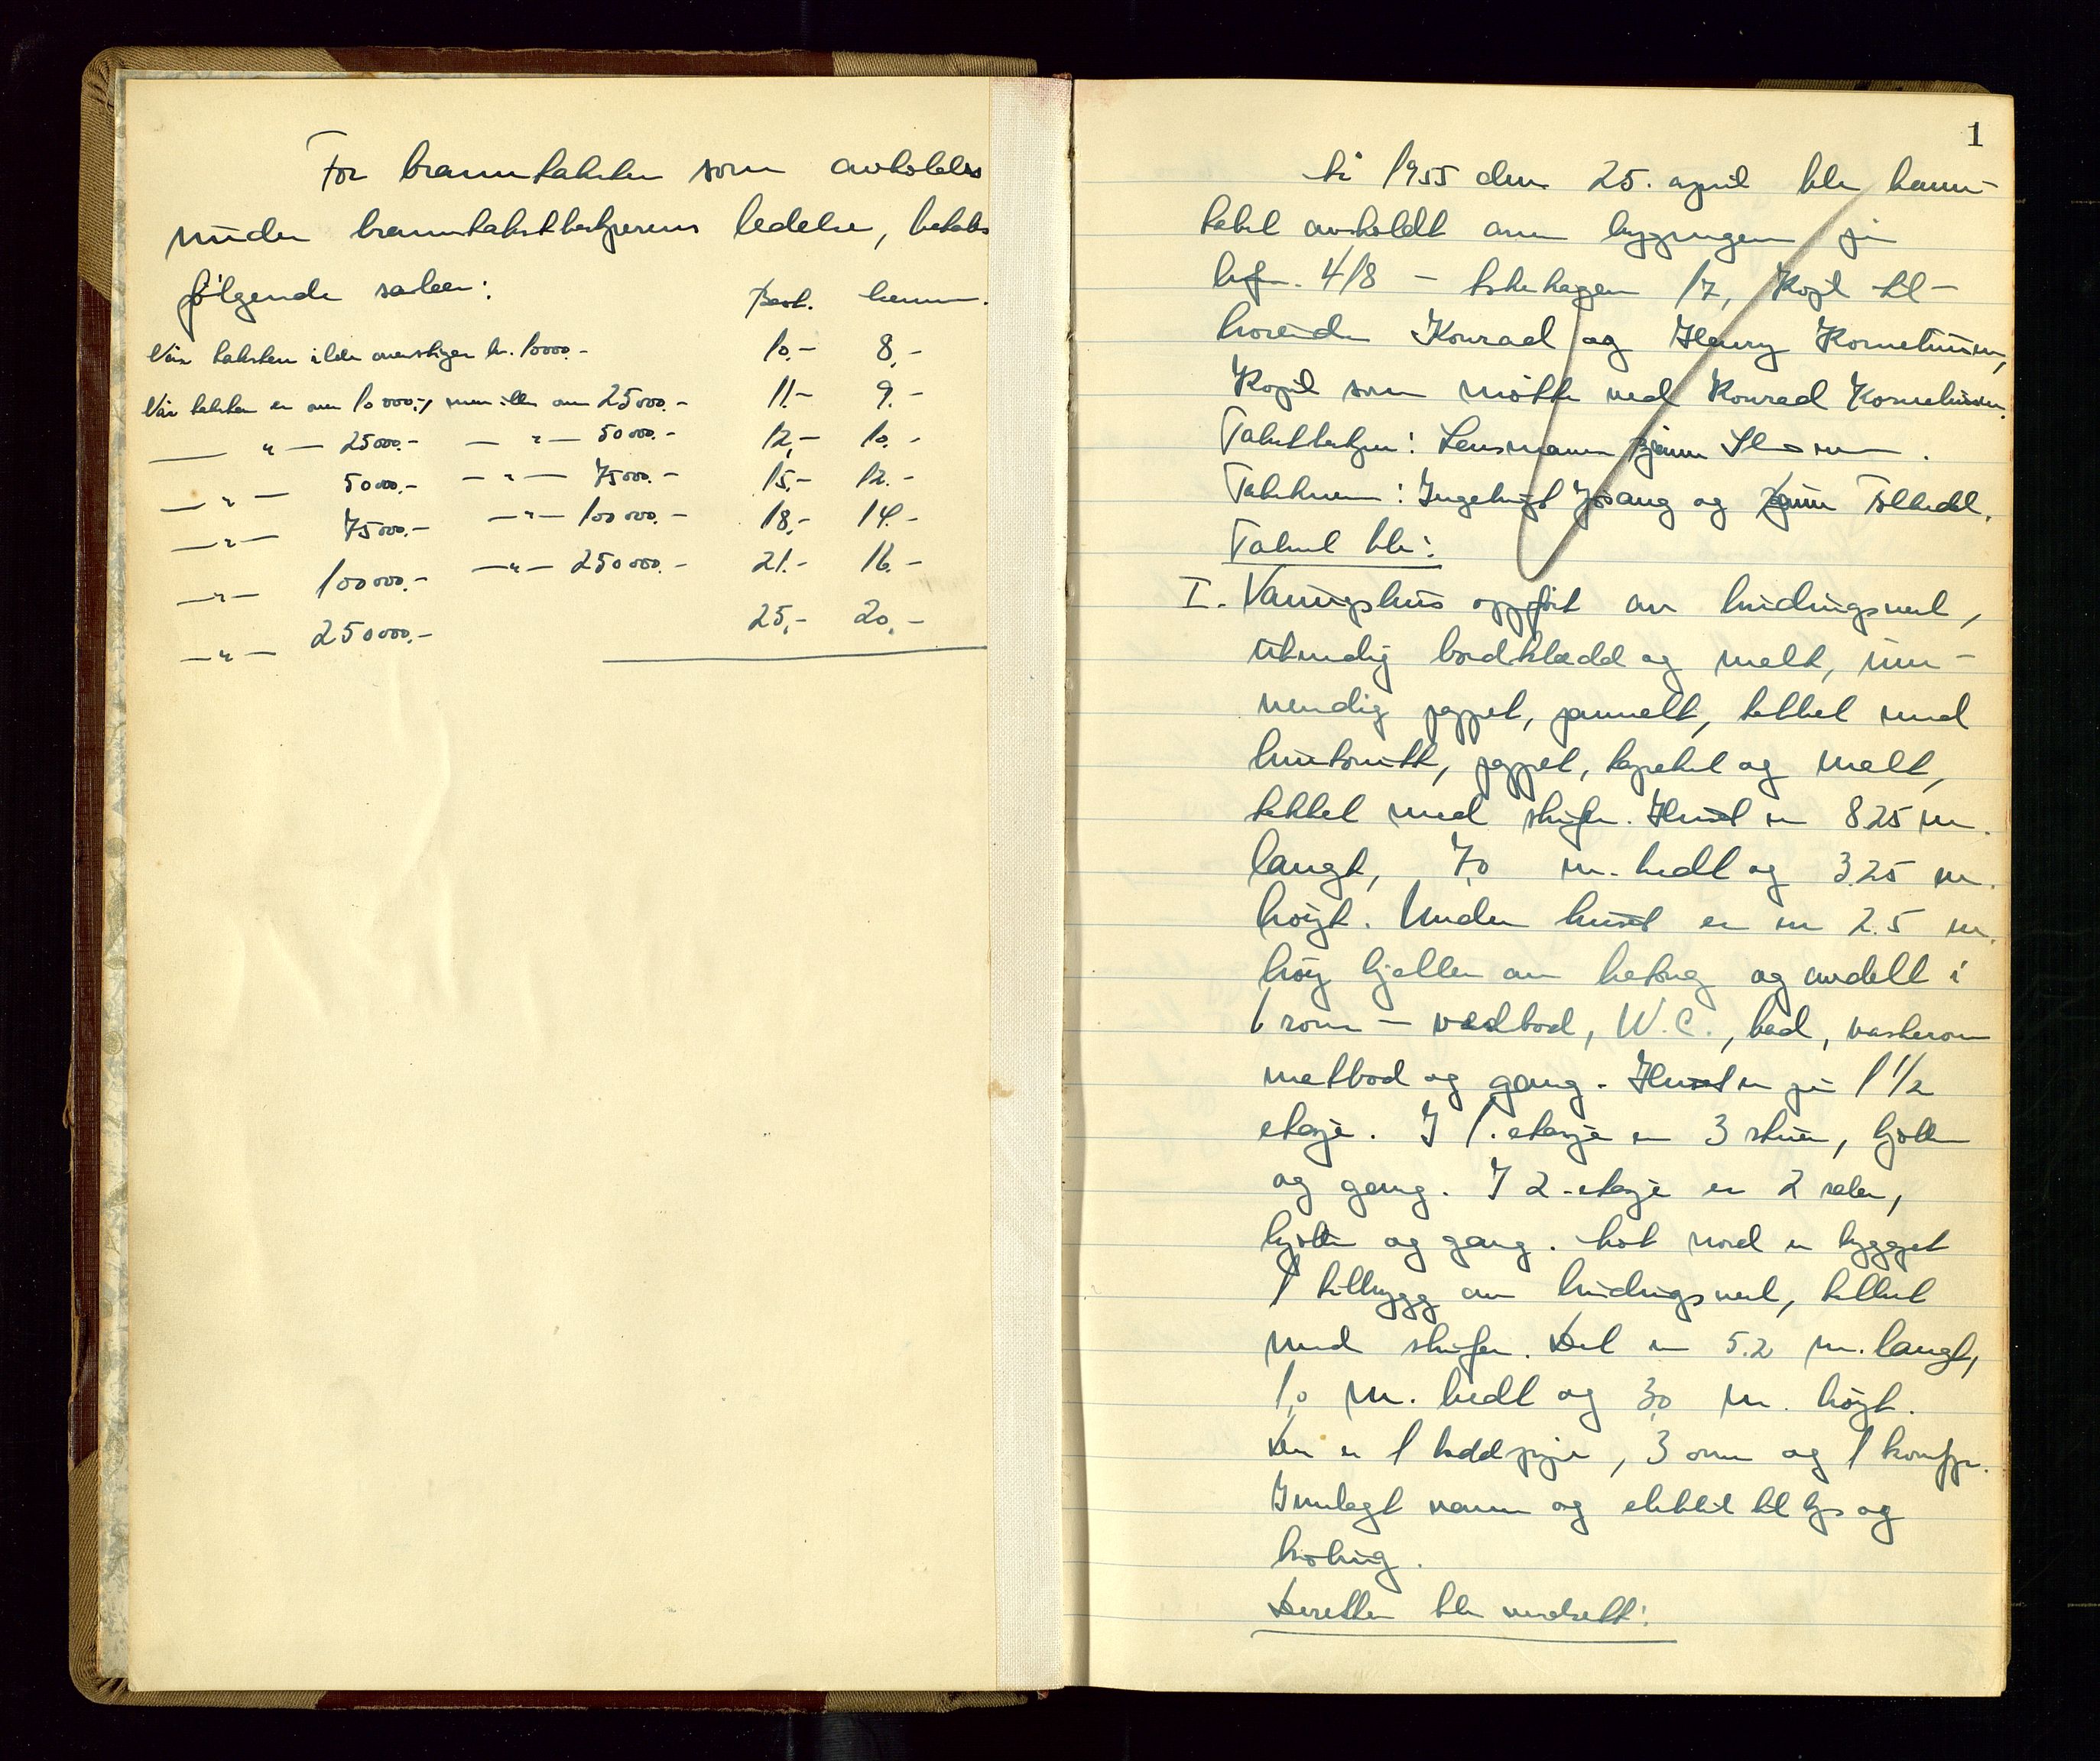 For branntakster som avholdes
under branntakstbestyrerens ledelse, betales
følgende satser:
Best. Menn.
Når taksten ikke overstiger kr. 10000.- 10.- 8,-
Når taksten er over 10000,-, men ikke over 25000.- 11.- 9.-
— " — 25000.- — " — 50000.- 12,- 10.-
— " — 50000.- — " — 75000.- 15.- 12.-
— " — 75000.- — " — 100000.- 18.- 14.-
— " — 100000.- — " — 250000.- 21.- 16.-
— " — 250000.- 25,- 20,-
1
År 1955 den 25. april ble brann-
takst avholdt over bygningen på
bnr. 4/8 - 17, Kopl til-
hørende Konrad og Henry Korneliussen,
som møtte ved Konrad Korneliussen.
Takstbestyrer: Lensmann
Takstmenn: Ingebrigt Jøsang og
Takst ble:
I. Våningshus oppført av bindingsverk,
utvendig bordkledd og malt, inn-
vendig pappet, panelt, tekket med
pappet, tapetsert og malt,
tekket med skifer. Huset er 8.25 m.
langt, 7,0 m. bredt og 3.25 m.
høyt. Under huset er en 2.5 m.
høy kjeller av betong og avdelt i
6 rom - vedbod, W.C., bad, vaskerom
matbod og gang. Huset er på 1 1/2
etasje. I 1. etasje er 3 stuer, kjøkken
og gang. I 2. etasje er 2 saler,
kjøkken og gang. Mot nord er bygget
1 tilbygg av bindingsverk, tekket
med skifer. Det er 5.2 m. langt,
1,0 m. bredt og 3,0 m. høyt.
Der er 1 teglpipe, 3 ovner og 1 komfyr.
Innlagt vann og elektrisk til lys og
koking.
Deretter ble verdsett: